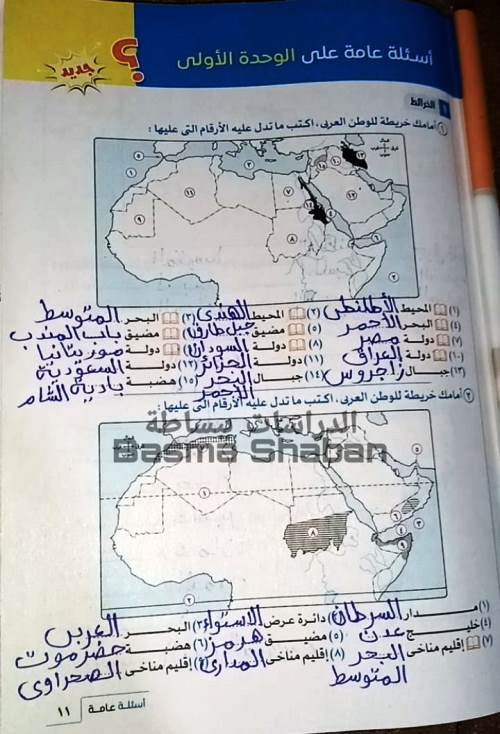 أسئلة عامة على الوحدة الأولى
؟
جديد
الخرائط
١ أمامك خريطة للوطن العربى، اكتب ما تدل عليه الأرقام التى عليها :
(١) المحيط الأطلنطى (٢) المحيط الهندى (٣) البحر المتوسط
(٤) البحر الأحمر (٥) مضيق جبل طارق (٦) مضيق باب المندب
(٧) دولة مصر (٨) دولة السودان (٩) دولة موريتانيا
(١٠) دولة العراق (١١) دولة الجزائر (١٢) دولة السعودية
(١٣) جبال زاجروس (١٤) جبال البحر الأحمر (١٥) هضبة بادية الشام
٢ أمامك خريطة للوطن العربى، اكتب ما تدل عليه الأرقام التى عليها :
الدراسات ببساطة
Basma Shaban
(١) مدار السرطان (٢) دائرة عرض الاستواء (٣) البحر العربى
(٤) خليج عدن (٥) مضيق هرمز (٦) هضبة حضرموت
(٧) إقليم مناخى البحر المتوسط (٨) إقليم مناخى المدارى (٩) إقليم مناخى الصحراوى
أسئلة عامة ١١